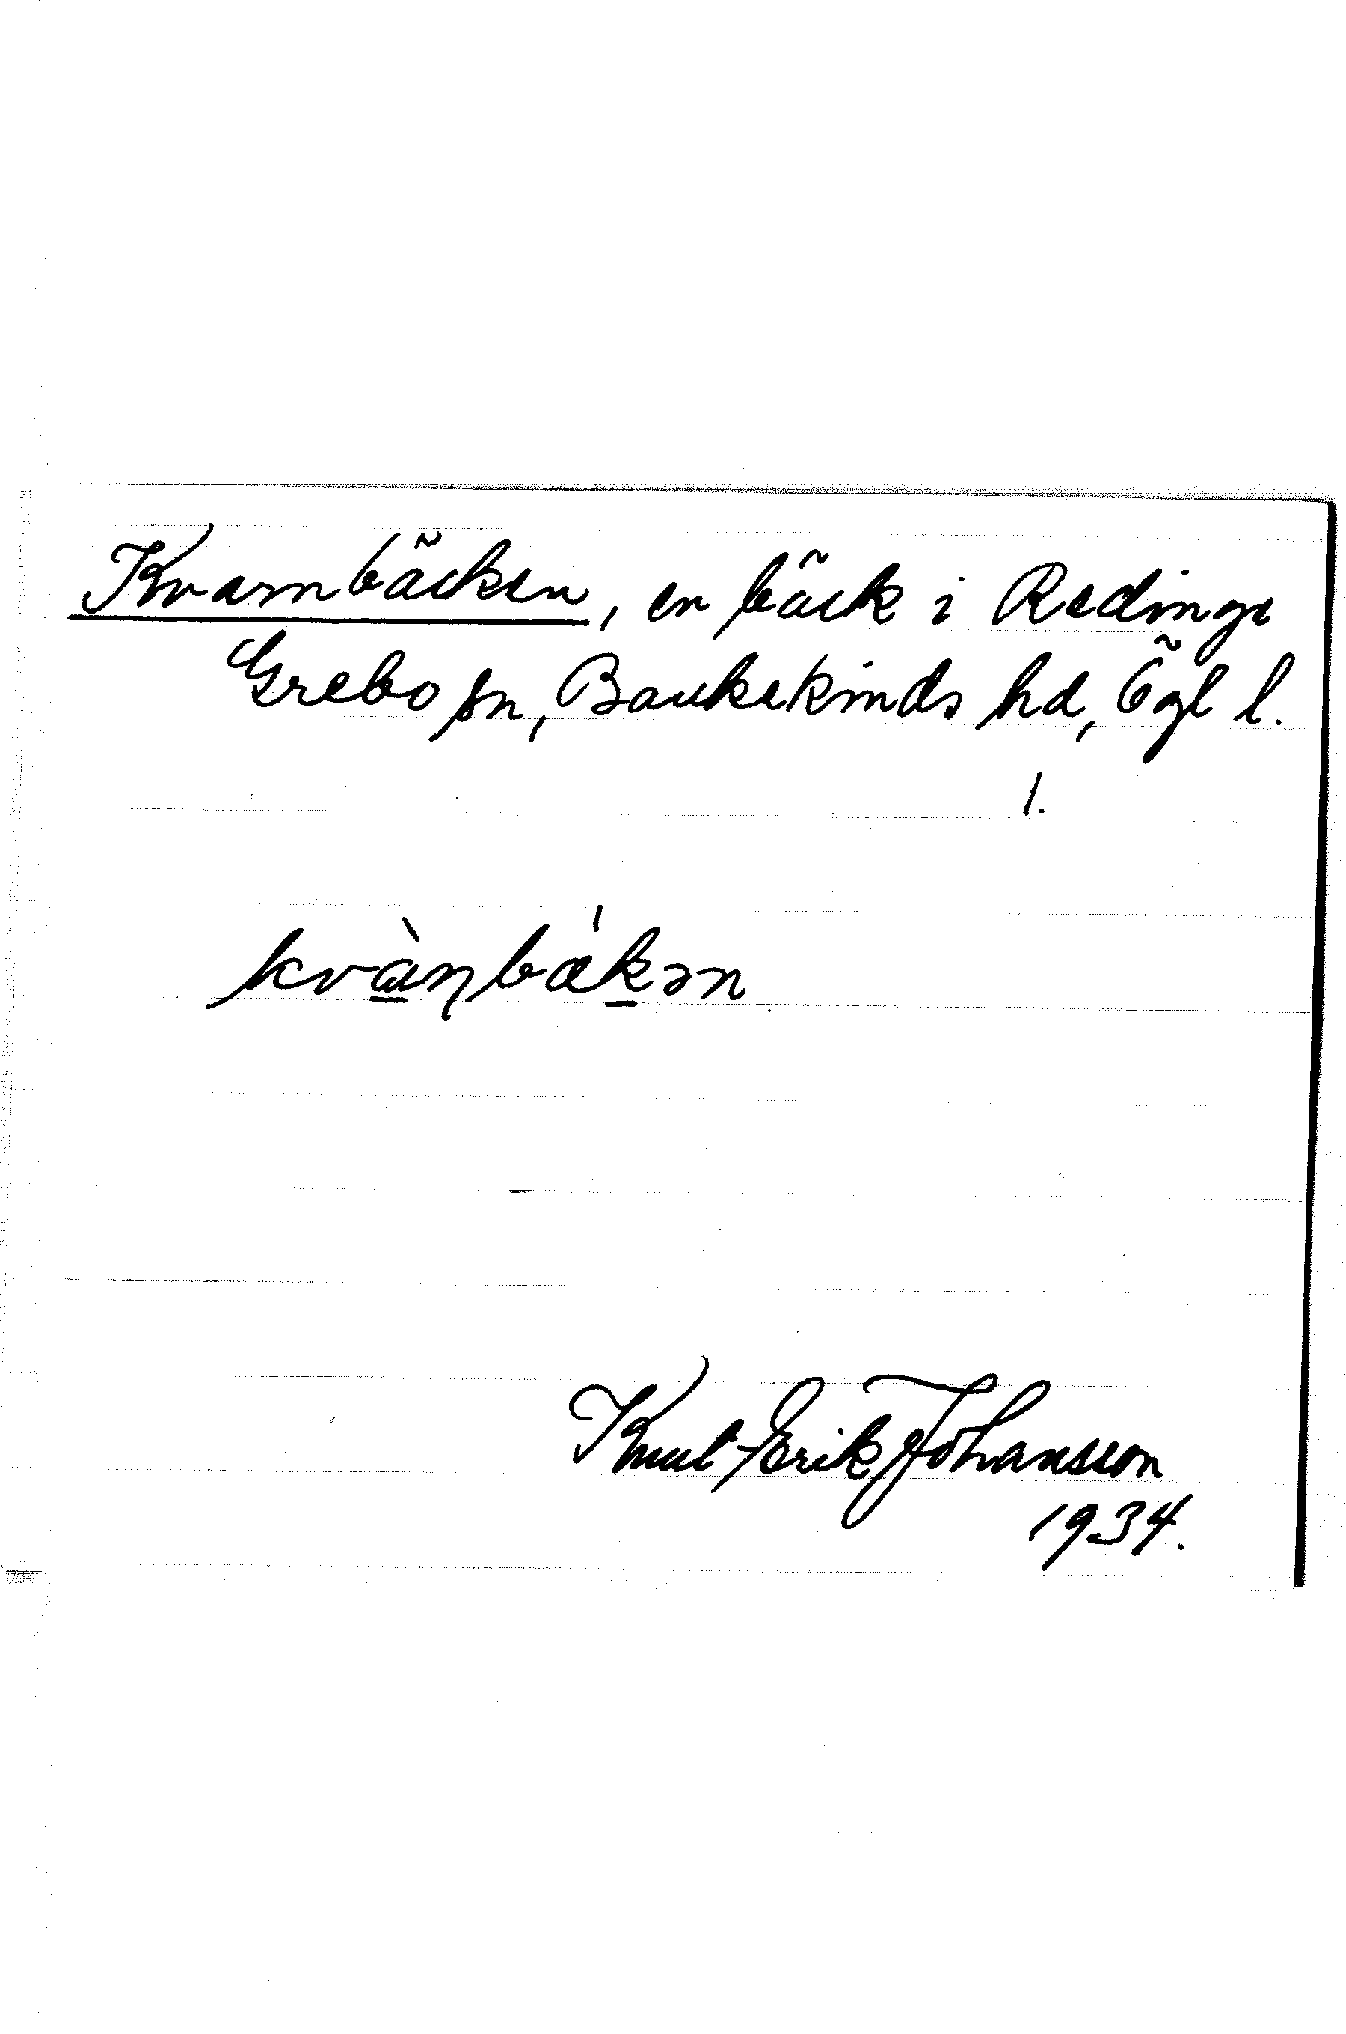 Kvarnbäcken, en bäck i Redinge
Grebo sn, Bankekinds hd, Ögl l.
1.
kvàn̥bǽkən
Knut-Erik Johansson
1934.